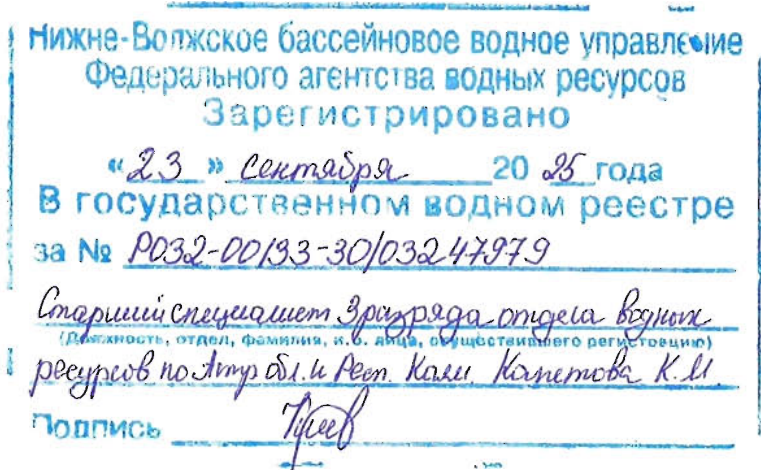 Нижне-Волжское бассейновое водное управление
Федерального агентства водных ресурсов
Зарегистрировано
«23» сентября 2025 года
В государственном водном реестре
за № Р032-00133-30/03247979
Старший специалист 3 разряда отдела водных
(Должность, отдел, фамилия, и.о. лица, осуществившего регистрацию)
ресурсов по Астр обл. и Респ. Калм. Капетова К.М.
Подпись